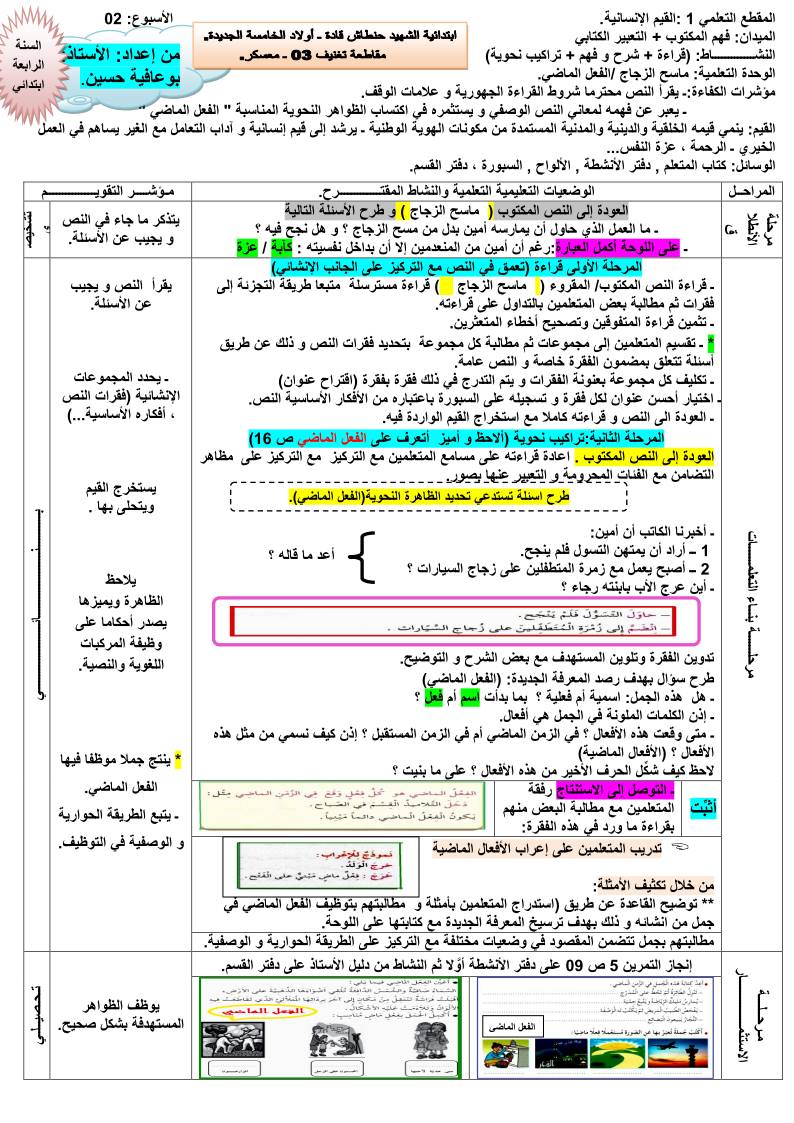 المقطع التعلمي 1 :القيم الإنسانية.
الأسبوع: 02
الميدان: فهم المكتوب + التعبير الكتابي
النشـــــــــــاط: (قراءة + شرح و فهم + تراكيب نحوية)
الوحدة التعلمية: ماسح الزجاج /الفعل الماضي.
ابتدائية الشهيد حنطاش قادة ـ أولاد الخامسة الجديدة.
مقاطعة تغنيف 03 ـ معسكر.
من إعداد: الأستاذ
بوعافية حسين.
السنة
الرابعة
ابتدائي
مؤشرات الكفاءة:ـ يقرأ النص محترما شروط القراءة الجهورية و علامات الوقف.
ـ يعبر عن فهمه لمعاني النص الوصفي و يستثمره في اكتساب الظواهر النحوية المناسبة " الفعل الماضي "
القيم: ينمي قيمه الخلقية والدينية والمدنية المستمدة من مكونات الهوية الوطنية ـ يرشد إلى قيم إنسانية و آداب التعامل مع الغير يساهم في العمل
الخيري ـ الرحمة ، عزة النفس...
الوسائل: كتاب المتعلم , دفتر الأنشطة , الألواح , السبورة ، دفتر القسم.
المراحـل
الوضعيات التعليمية التعلمية والنشاط المقتـــــــــــرح.
مـؤشــــر التقويـــــــــــــم
مرحلة
الانطلا
ق
العودة إلى النص المكتوب ( ماسح الزجاج ) و طرح الأسئلة التالية
ـ ما العمل الذي حاول أن يمارسه أمين بدل من مسح الزجاج ؟ و هل نجح فيه ؟
ـ على اللوحة أكمل العبارة:رغم أن أمين من المنعدمين إلا أن بداخل نفسيته : كآبة / عزة
يتذكر ما جاء في النص
و يجيب عن الأسئلة.
مرحلـــــة بناء التعلمـــــات
المرحلة الأولى قراءة (تعمق في النص مع التركيز على الجانب الإنشائي)
ـ قراءة النص المكتوب/ المقروء ( ماسح الزجاج ) قراءة مسترسلة متبعا طريقة التجزئة إلى
فقرات ثم مطالبة بعض المتعلمين بالتداول على قراءته.
ـ تثمين قراءة المتفوقين وتصحيح أخطاء المتعثرين.
* ـ تقسيم المتعلمين إلى مجموعات ثم مطالبة كل مجموعة بتحديد فقرات النص و ذلك عن طريق
أسئلة تتعلق بمضمون الفقرة خاصة و النص عامة.
ـ تكليف كل مجموعة بعنونة الفقرات و يتم التدرج في ذلك فقرة بفقرة (اقتراح عنوان)
ـ اختيار أحسن عنوان لكل فقرة و تسجيله على السبورة باعتباره من الأفكار الأساسية النص.
ـ العودة الى النص و قراءته كاملا مع استخراج القيم الواردة فيه.
يقرأ النص و يجيب
عن الأسئلة.
ـ يحدد المجموعات
الإنشائية (فقرات النص
، أفكاره الأساسية...)
يستخرج القيم
ويتحلى بها .
المرحلة الثانية:تراكيب نحوية (ألاحظ و أميز أتعرف على الفعل الماضي ص 16)
العودة إلى النص المكتوب . اعادة قراءته على مسامع المتعلمين مع التركيز مع التركيز على مظاهر
التضامن مع الفئات المحرومة و التعبير عنها بصور.
طرح اسئلة تستدعي تحديد الظاهرة النحوية(الفعل الماضي).
ـ أخبرنا الكاتب أن أمين:
1 ــ أراد أن يمتهن التسول فلم ينجح.
2 ــ أصبح يعمل مع زمرة المتطفلين على زجاج السيارات ؟
أعد ما قاله ؟
ـ أين عرج الأب بابنته رجاء ؟
– حاوَلَ التَّسَوُّلَ فَلَمْ يَنْجَحْ .
– اِنْضَمَّ إلى زُمْرَةِ الْمُتَطَفِّلينَ على زُجاجِ السَّيّارات .
يلاحظ
الظاهرة ويميزها
يصدر أحكاما على
وظيفة المركبات
اللغوية والنصية.
تدوين الفقرة وتلوين المستهدف مع بعض الشرح و التوضيح.
طرح سؤال بهدف رصد المعرفة الجديدة: (الفعل الماضي)
ـ هل هذه الجمل: اسمية أم فعلية ؟ بما بدأت اسم أم فعل ؟
ـ إذن الكلمات الملونة في الجمل هي أفعال.
ـ متى وقعت هذه الأفعال ؟ في الزمن الماضي أم في الزمن المستقبل ؟ إذن كيف نسمي من مثل هذه
الأفعال ؟ (الأفعال الماضية)
لاحظ كيف شكّل الحرف الأخير من هذه الأفعال ؟ على ما بنيت ؟
* ينتج جملا موظفا فيها
الفعل الماضي.
ـ يتبع الطريقة الحوارية
و الوصفية في التوظيف.
أثبّت
ـ التوصل إلى الاستنتاج رفقة
المتعلمين مع مطالبة البعض منهم
بقراءة ما ورد في هذه الفقرة:
الفِعْلُ الماضي هو كُلُّ فِعْلٍ وَقَعَ في الزَّمَنِ الماضي مِثْل:
دَخَلَ التَّلاميذُ القِسْمَ في الصَّباح .
يَكونُ الفِعْلُ الماضي دائِماً مَبْنِيّاً .
تدريب المتعلمين على إعراب الأفعال الماضية
نموذج للإعراب :
خَرَجَ الوَلَدُ .
خَرَجَ : فِعْلٌ ماضٍ مَبْنِيٌّ على الفَتْحِ.
من خلال تكثيف الأمثلة:
** توضيح القاعدة عن طريق (استدراج المتعلمين بأمثلة و مطالبتهم بتوظيف الفعل الماضي في
جمل من انشائه و ذلك بهدف ترسيخ المعرفة الجديدة مع كتابتها على اللوحة.
مطالبتهم بجمل تتضمن المقصود في وضعيات مختلفة مع التركيز على الطريقة الحوارية و الوصفية.
مرحلــــة
الاستثمــــــار
إنجاز التمرين 5 ص 09 على دفتر الأنشطة أوّلا ثم النشاط من دليل الأستاذ على دفتر القسم.
يوظف الظواهر
المستهدفة بشكل صحيح.
تحصيلـي
الفعل الماضي
الفعل الماضي